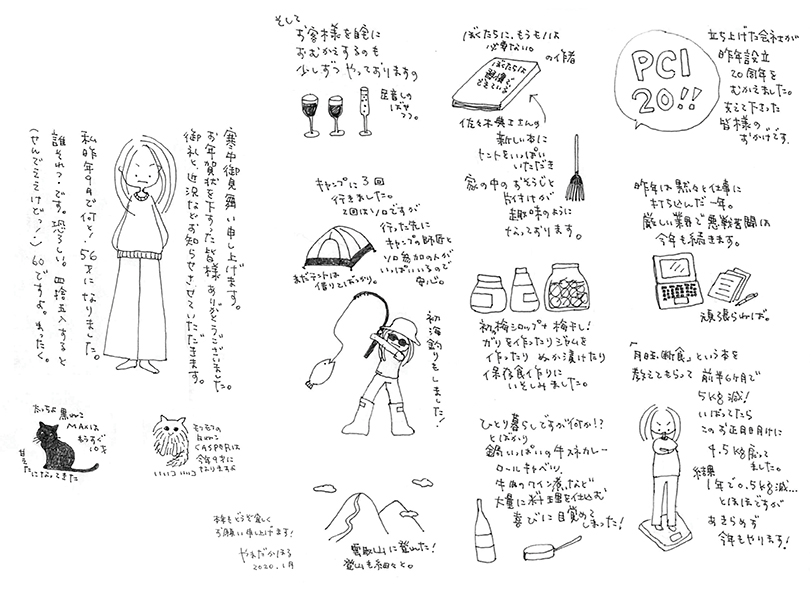 寒中御見舞い申し上げます。
お年賀状を下さった皆様ありがとうございました。
御礼と、近況などお知らせさせていただきます。
私昨年9月で何と!56才になりました。
誰それ?です。恐ろしい。四捨五入すると
(せんでええけどっ!)60ですよ。まったく。
立ち上げた会社が
昨年設立
20周年を
むかえました。
支えて下さった
皆様の
おかげです。
PCI
20!!
昨年は黙々と仕事に
打ち込んだ一年。
厳しい業界で悪戦苦闘は
今年も続きます。
頑張らねば。
「月曜断食」という本を
教えてもらって 前半6ヶ月で
5kg減!
いばってたら
このお正月明けに
4.5kg戻って
ました。
結果
1年で0.5kg減…
とほほですが
あきらめず
今年もやります!
ぼくたちに、もうモノは
必要ない。
の作者
ぼくたちは
習慣で
できている
佐々木典士さんの
新しい本に
ヒントをいっぱい
いただき
家の中のおそうじと
片付けが
趣味のように
なっております。
初の梅シロップや梅干し!
ガリを作ったりジャムを
作ったり ぬか漬けたり
保存食作りに
いそしみました。
ひとり暮らしですが何か!?
とばかり
鍋いっぱいの牛スネカレー
ロールキャベツ、
牛肉のワイン煮、など
大量に料理を仕込む
喜びに目覚めて
しまった!
そして
お客様を自宅に
おむかえするのも
少しずつ やっております
キャンプに3回
行きました。
2回はソロですが
行った先に
キャンプの師匠と
ソロ参加の人が
いっぱいいるので
安心。
まだテントは
借りてばっかり。
初海釣りもしました!
雲取山に登んた!
登山も細々と。
黒ねこ
MAXは
もうすぐ
10才
甘えたになってきた
モフモフの
白ねこ
CASPERは
今年9才に
なりますよ
いいコ いいコ
本年もどうぞ宜しく
お願い申し上げます!
やまだかほる
2020.1月